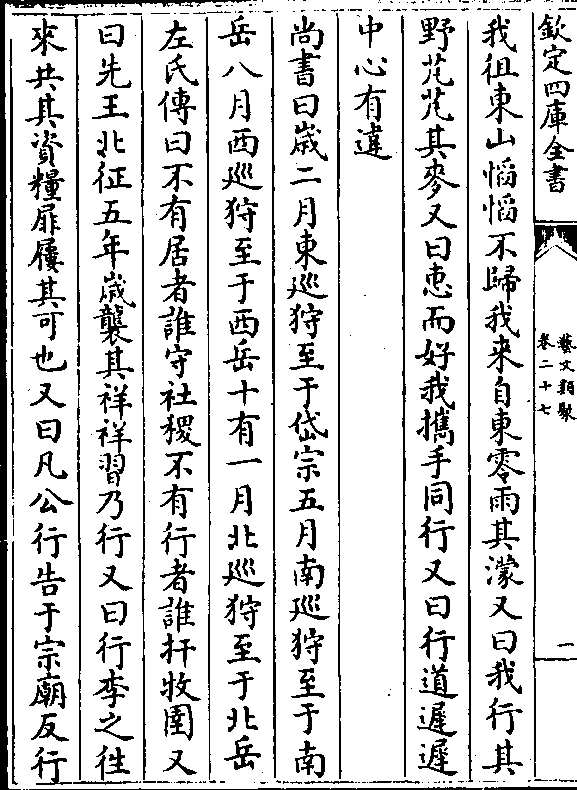 欽定四庫全書
藝文類聚
卷二十七
一
我徂東山慆慆不歸我來自東零雨其濛又曰我行其
野芃芃其麥又曰惠而好我攜手同行又曰行道遲遲
中心有違
尚書曰歲二月東巡狩至于岱宗五月南巡狩至于南
岳八月西巡狩至于西岳十有一月北巡狩至于北岳
左氏傳曰不有居者誰守社稷不有行者誰扞牧圉又
曰先王北征五年歲襲其祥祥習乃行又曰行李之往
來共其資糧屝屨其可也又曰凡公行告于宗廟反行